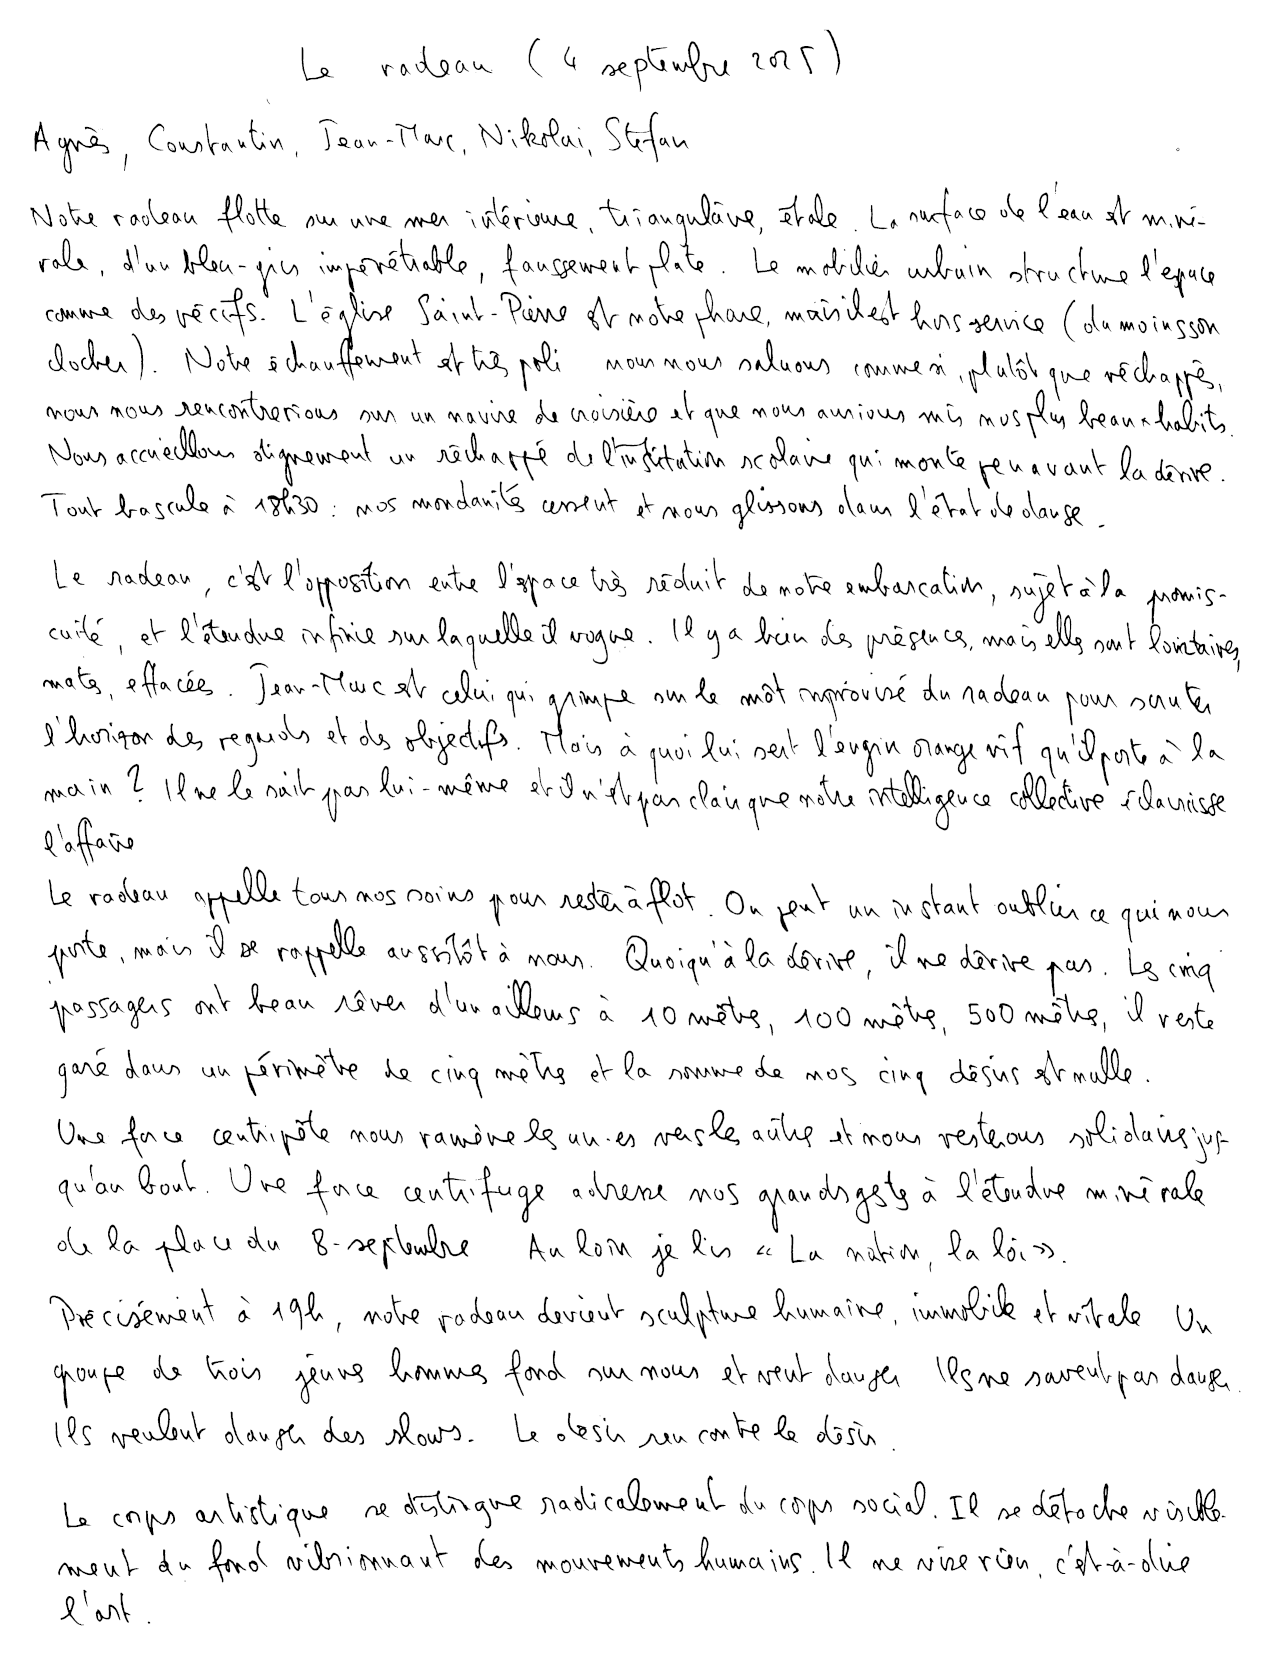 Le radeau (4 septembre 2025)
Agnès, Constantin, Jean-Marc, Nikolai, Stefan
Notre radeau flotte sur une mer intérieure, triangulaire, étale. La surface de l'eau est miné-
rale, d'un bleu-gris impénétrable, faussement plate. Le mobilier urbain structure l'espace
comme des récifs. L'église Saint-Pierre est notre phare, mais il est hors service (du moins son
clocher). Notre échauffement est très poli nous nous saluons comme si, plutôt que réchappés,
nous nous rencontrerions sur un navire de croisière et que nous aurions mis nos plus beaux habits.
Nous accueillons dignement un réchappé de l'institution scolaire qui monte peu avant la dérive.
Tout bascule à 18h30 : nos mondanités cessent et nous glissons dans l'état de danse.
Le radeau, c'est l'opposition entre l'espace très réduit de notre embarcation, sujet à la promis-
cuité, et l'étendue infinie sur laquelle il vogue. Il y a bien des présences, mais elles sont lointaines,
mates, effacées. Jean-Marc est celui qui grimpe sur le mât improvisé du radeau pour scruter
l'horizon des regards et des objectifs. Mais à quoi lui sert l'engin orange vif qu'il porte à la
main ? Il ne le sait pas lui-même et il n'est pas clair que notre intelligence collective éclaircisse
l'affaire
Le radeau appelle tous nos soins pour rester à flot. On peut un instant oublier ce qui nous
porte, mais il se rappelle aussitôt à nous. Quoiqu'à la dérive, il ne dérive pas. Les cinq
passagers ont beau rêver d'un ailleurs à 10 mètres, 100 mètres, 500 mètres, il reste
garé dans un périmètre de cinq mètres et la somme de nos cinq désirs est nulle.
Une force centripète nous ramène les un·es vers les autres et nous resterons solidaires jus-
qu'au bout. Une force centrifuge adresse nos grands gestes à l'étendue minérale
de la place du 8-septembre Au loin je lis « La nation, la loi ».
Précisément à 19h, notre radeau devient sculpture humaine, immobile et vitale Un
groupe de trois jeunes hommes fond sur nous et veut danser Ils ne savent pas danser.
Ils veulent danser des slows. Le désir rencontre le désir.
Le corps artistique se distingue radicalement du corps social. Il se détache visible-
ment du fond vibrionnant des mouvements humains. Il ne vise rien, c'est-à-dire
l'art.